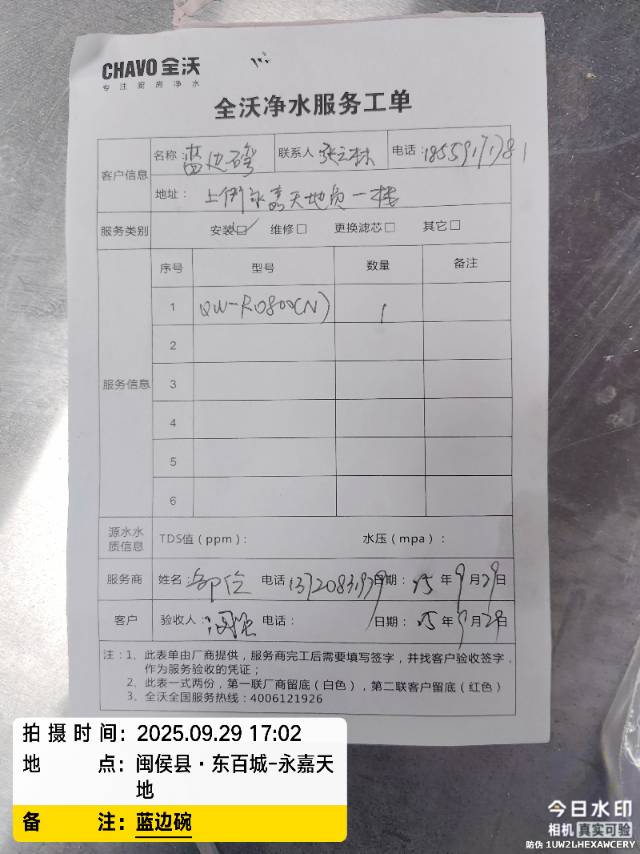 CHAVO 全沃
专注厨房净水
全沃净水服务工单
客户信息
名称: 蓝边碗 联系人 张立林 电话: 18559171781
地址: 上街永嘉天地负一楼
服务类别 安装☑ 维修□ 更换滤芯□ 其它□
服务信息
序号 型号 数量 备注
1 QW-RO800(N) 1
2
3
4
5
6
源水水质信息 TDS值(ppm): 水压(mpa):
服务商 姓名: 电话 13720831979 日期: 25年9月29日
客户 验收人: 电话: 日期: 25年9月29日
注:1、此表单由厂商提供,服务商完工后需要填写签字,并找客户验收签字,
作为服务验收的凭证;
2、此表一式两份,第一联厂商留底(白色),第二联客户留底(红色)
3、全沃全国服务热线:4006121926
拍摄时间: 2025.09.29 17:02
地点: 闽侯县·东百城-永嘉天
地
备注: 蓝边碗
今日水印
相机 真实可验
防伪 1UW2LHEXAWCERY